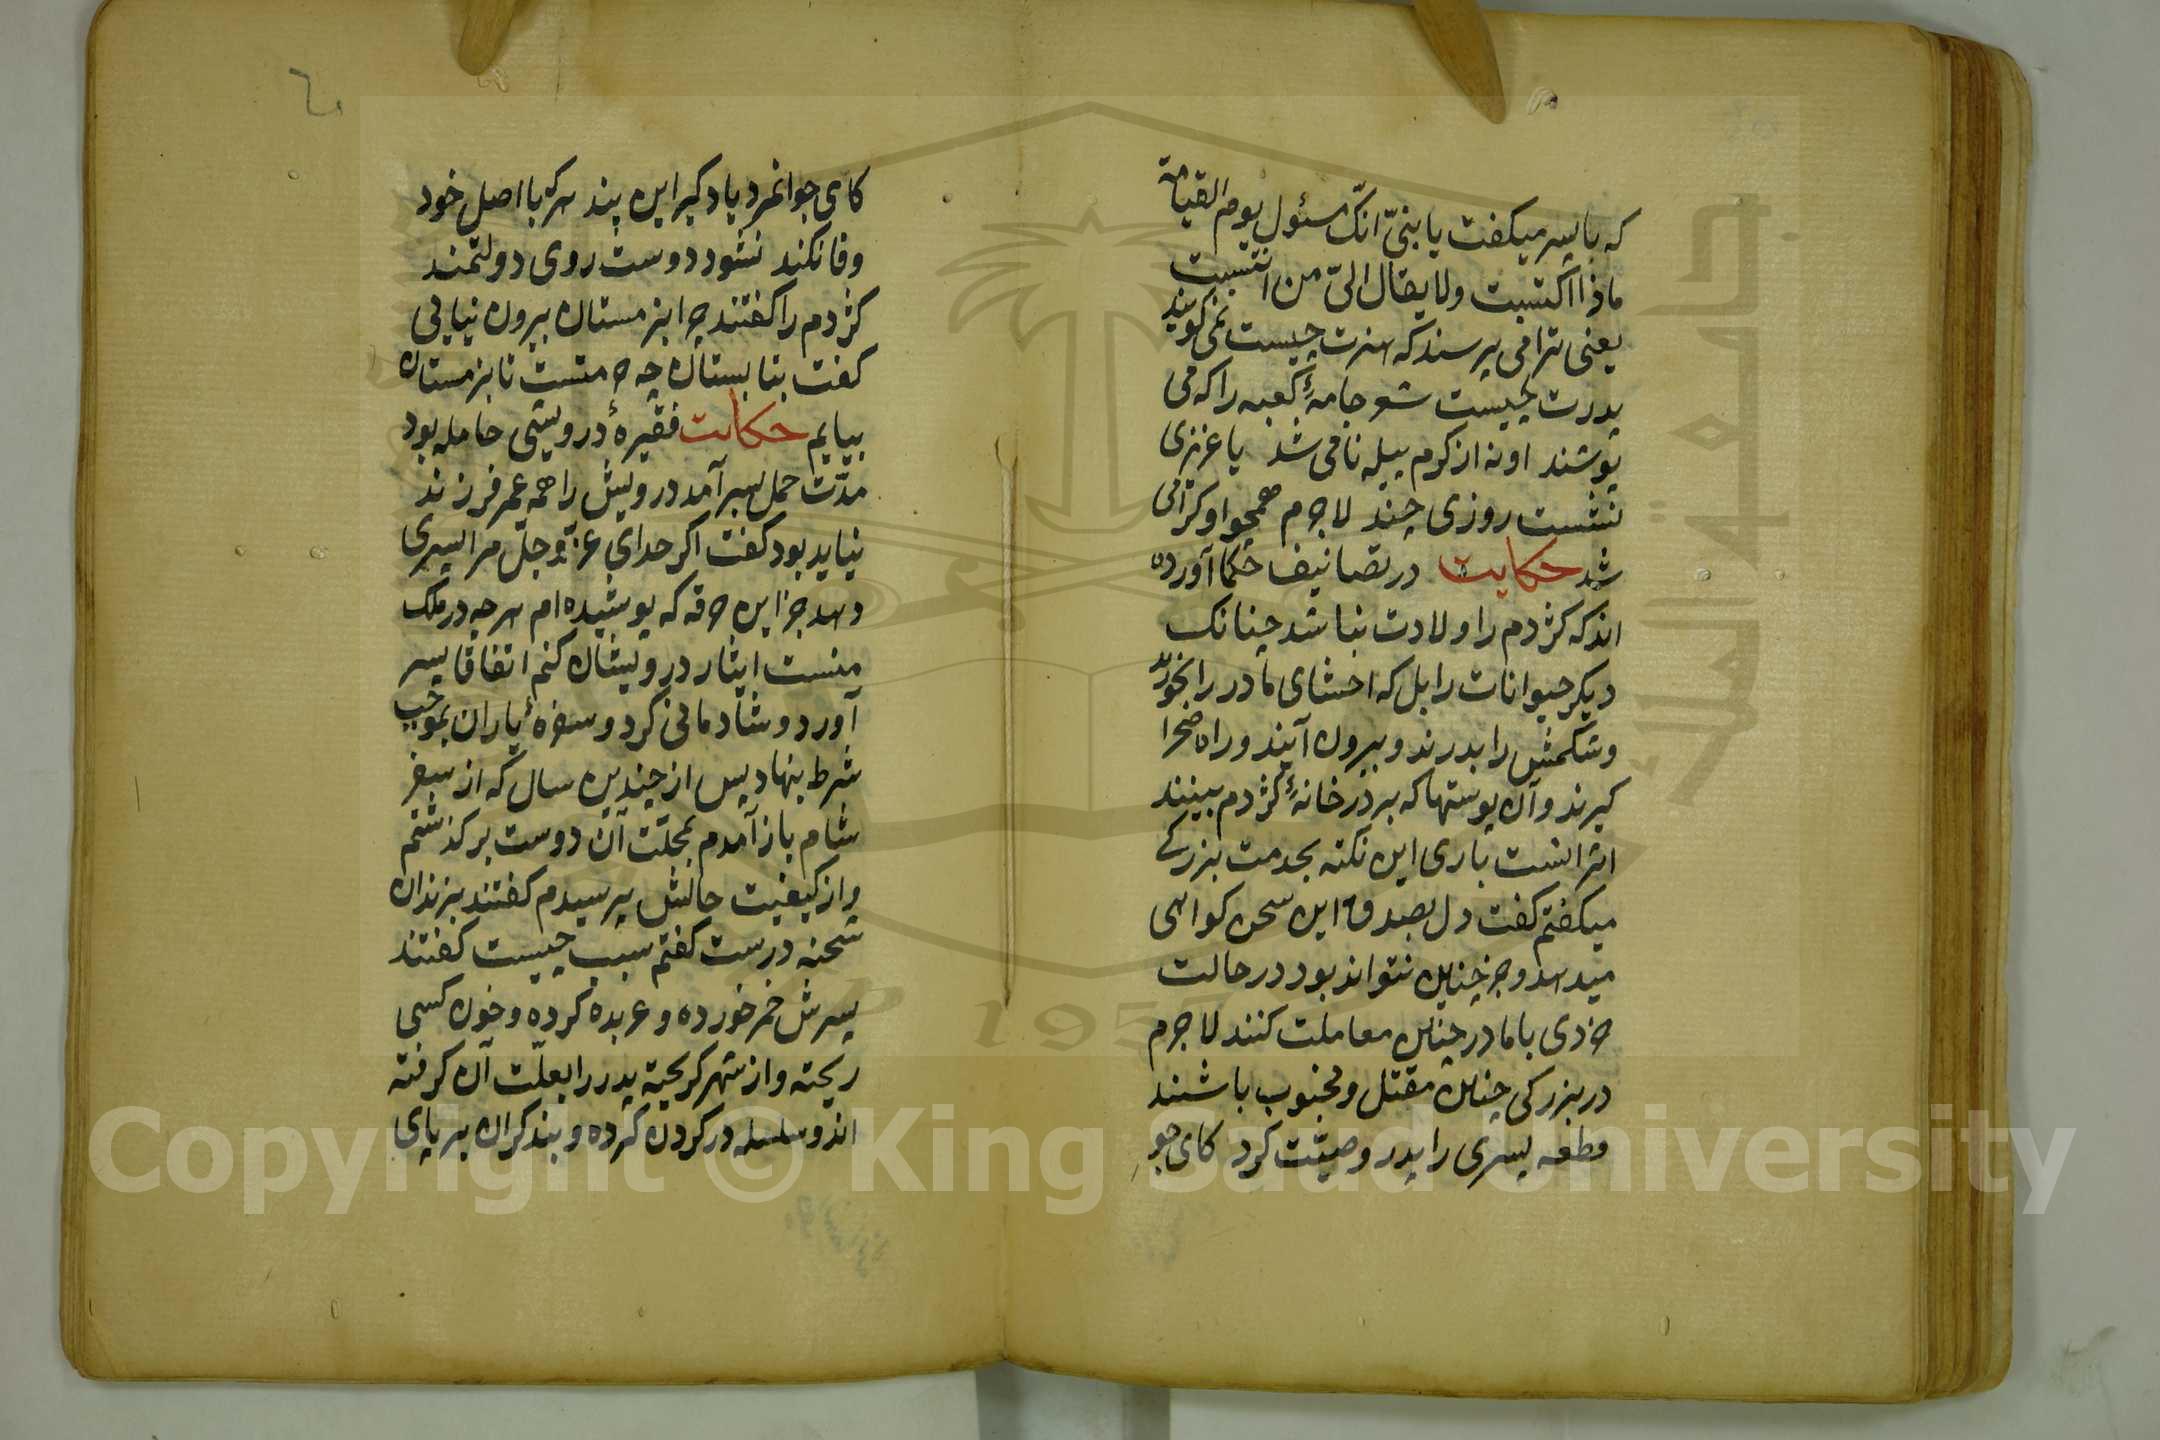 که با پسر میکفت یا بنیّ انکّ مسئول یوم القیامة
ماذا اکتسبت ولا یقال الیّ من انتسبت
یعنی ترا می پرسند که هنرت چیست نمی کویند
پدرت چیست شعر جامهٔ کعبه را که می
پوشند او نه از کرم پیله نامی شد با عزیزی
نشست روزی چند لا جرم همچو او کرامی
شد حکایت در تصانیف حکما آورده
اند که کژدم را ولادت نباشد چنانک
دیکر حیوانات را بل که احشای مادر را بخورند
وشکمش را بدرند و بیرون آیند و راه صحرا
کیرند و آن پوستها که بر در خانهٔ کژدم بینند
اثر انست باری این نکته بخدمت بزرکی
میکفتم کفت دل بصدق این سخن کواهی
میدهد و جز چنین نتواند بود در حالت
خردی با مادر چنین معاملت کنند لا جرم
در بزرکی چنین مقتل و محبوب باشند
قطعه پسری را پدر وصیّت کرد کای جو
کای جوانمرد یاد کیر این پند هر که با اصل خود
وفا نکند نشود دوست روی دولتمند
کژدم را کفتند چرا بزمستان بیرون نیایی
کفت بتابستان چه حرمتست تا بزمستان
بیایم حکایت فقیرهٔ درویشی حامله بود
مدّت حمل بسر آمد درویش را همه عمر فرزند
نیاید بود کفت اکر خدای عزّ وجلّ مرا پسری
دهد جز این خرقه که پوشیده ام هرچه در ملک
منست ایثار درویشان کنم اتفاقا پسر
آورد و شادمانی کرد و سفرهٔ یاران بموجب
شرط بنهاد پس از چندین سال که از سفر
شام باز آمدم بمحلّت آن دوست برکذشتم
واز کیفیت حالش پرسیدم کفتند بزندان
شحنه درست کفتم سبب چیست کفتند
پسرش خمر خورده و عربده کرده و خون کسی
ریخته و از شهر کریخته پدر را بعلّت آن کرفته
اند و سلسله در کردن کرده و بند کران بر پای
Copyright © King Saud University
1957